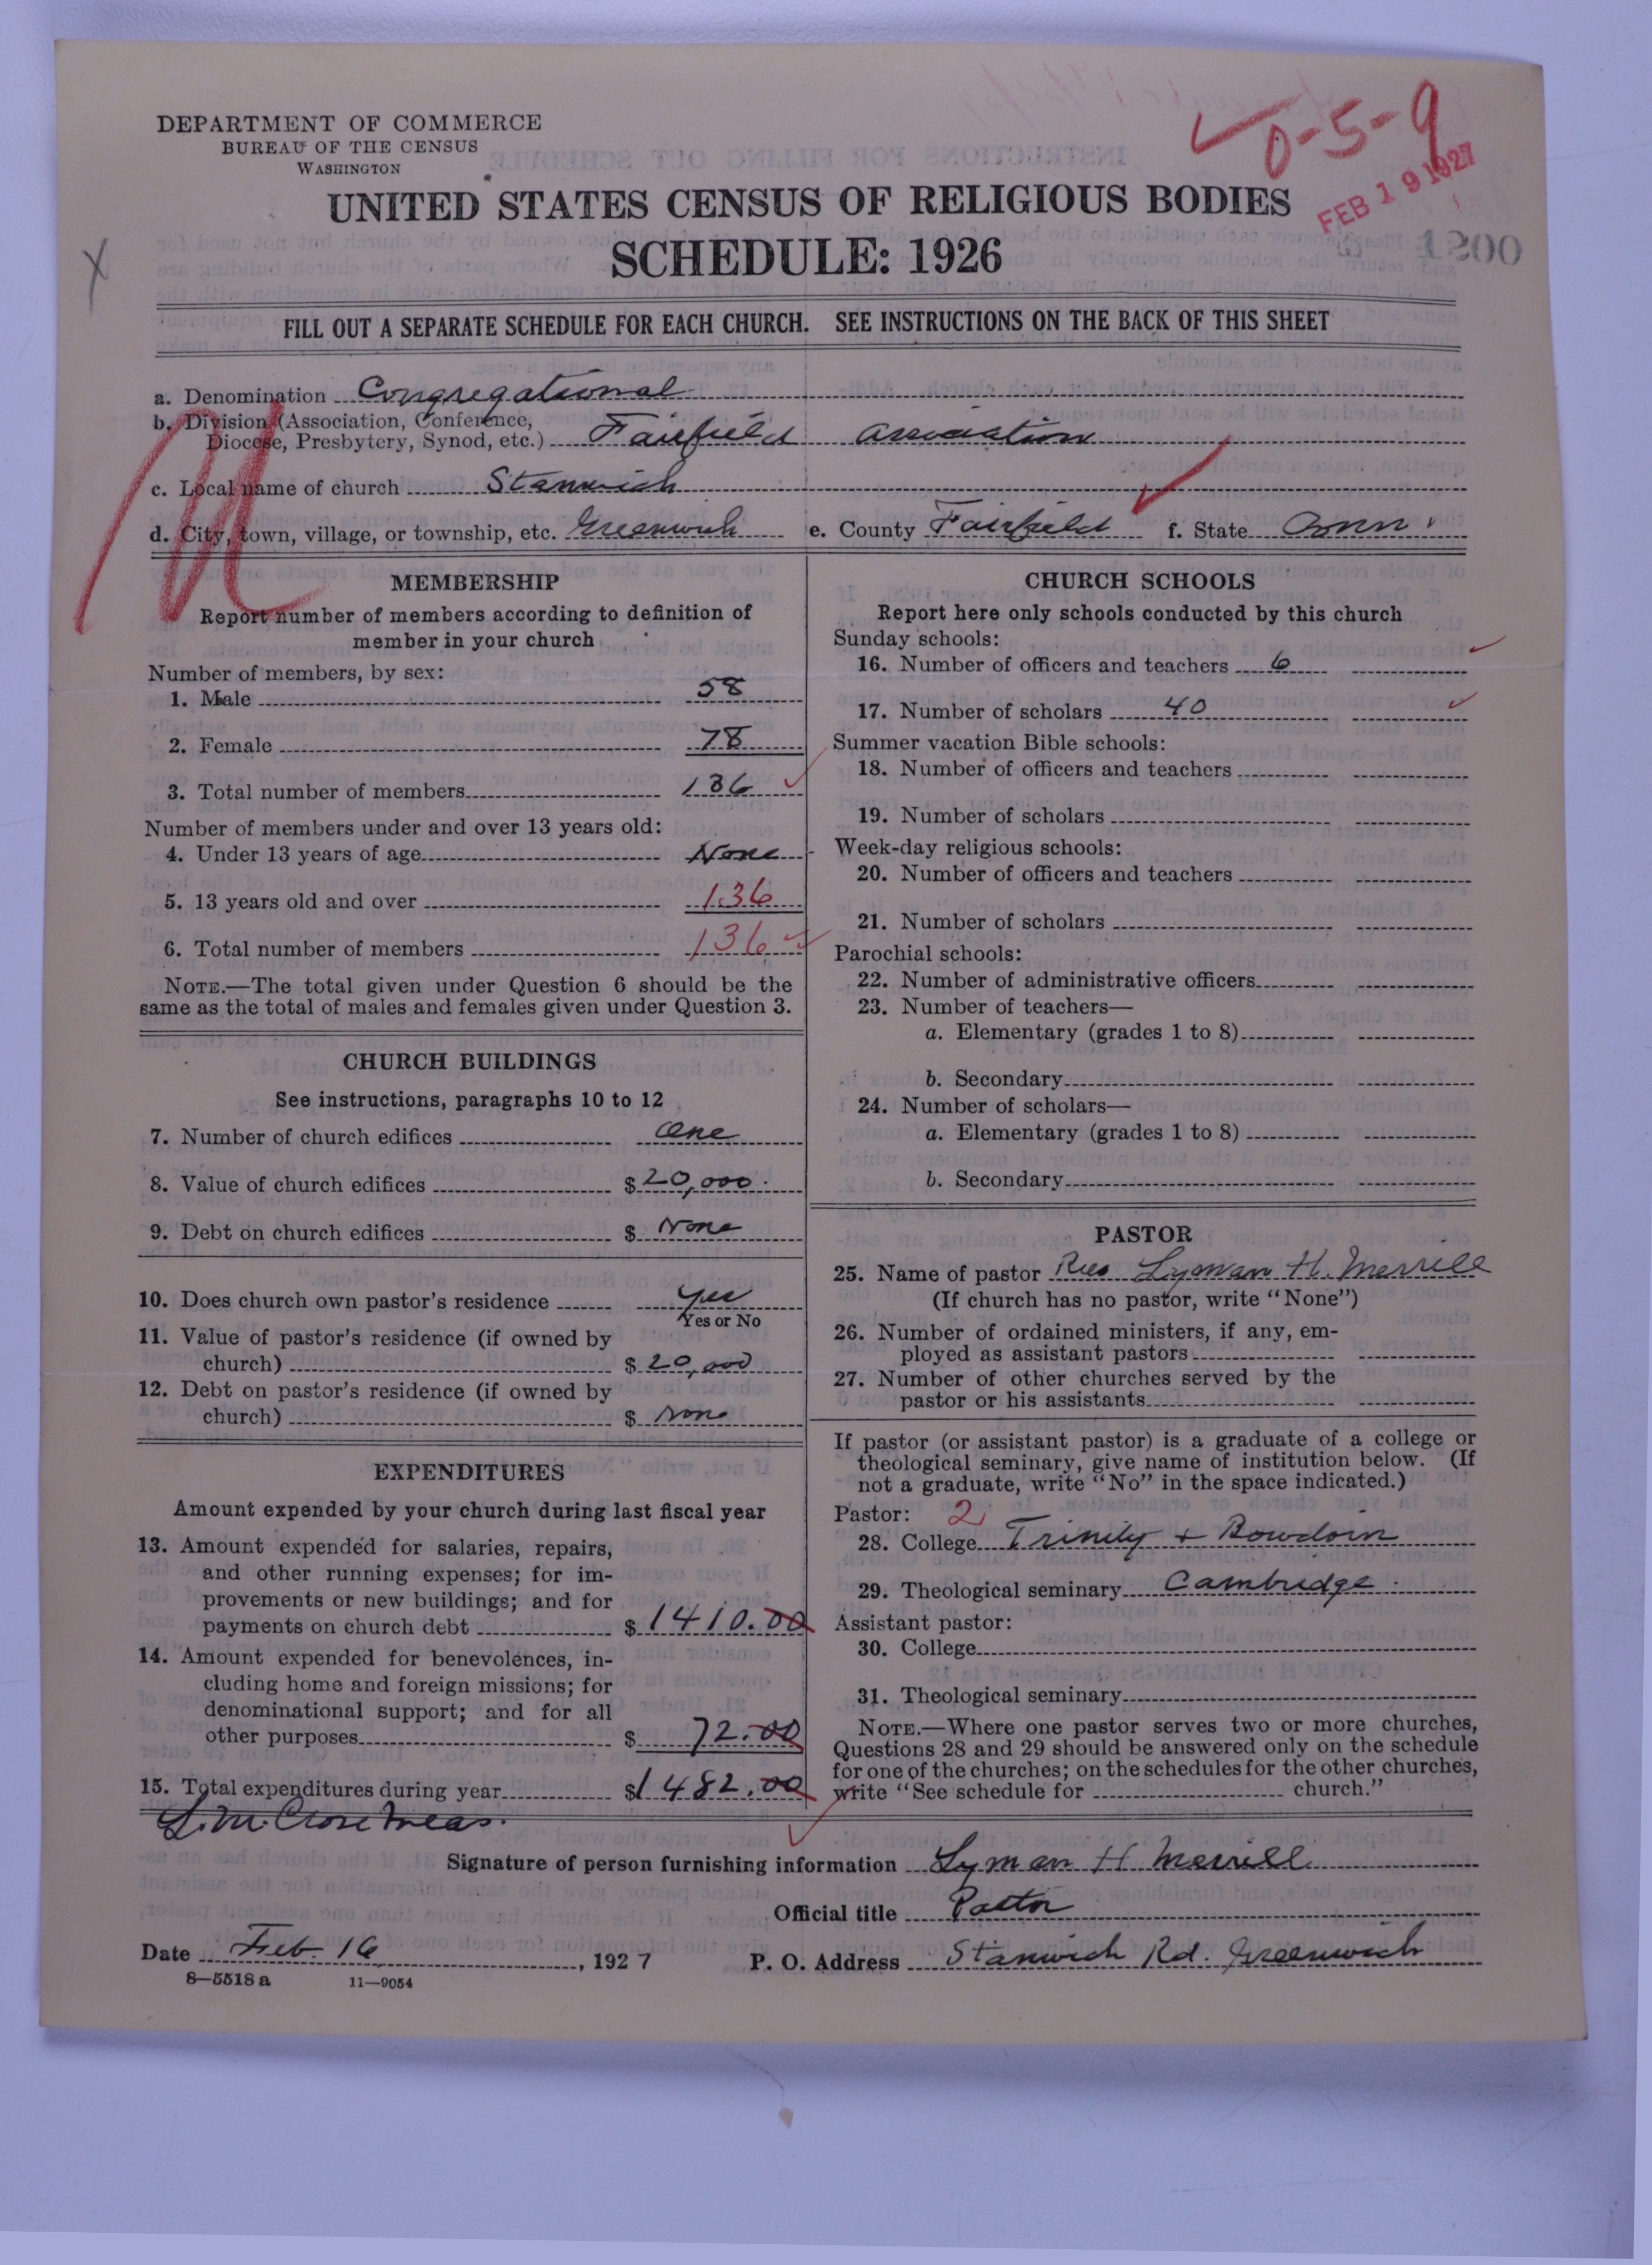 DEPARTMENT OF COMMERCE
BUREAU OF THE CENSUS
WASHINGTON
0-5-9
FEB 19 1927
1200
UNITED STATES CENSUS OF RELIGIOUS BODIES
SCHEDULE: 1926
FILL OUT A SEPARATE SCHEDULE FOR EACH CHURCH. SEE INSTRUCTIONS ON THE BACK OF THIS SHEET
a. Denomination Congregational
b. Division (Association, Conference,
Diocese, Presbytery, Synod, etc.) Fairfield Association
c. Local name of church Stanwich
d. City, town, village, or township, etc. Greenwich e. County Fairfield f. State Conn.
MEMBERSHIP
Report number of members according to definition of
member in your church
Number of members, by sex:
1. Male 58
2. Female 78
3. Total number of members 136
Number of members under and over 13 years old:
4. Under 13 years of age None
5. 13 years old and over 136
6. Total number of members 136
NOTE.—The total given under Question 6 should be the
same as the total of males and females given under Question 3.
CHURCH BUILDINGS
See instructions, paragraphs 10 to 12
7. Number of church edifices One
8. Value of church edifices $ 20,000.
9. Debt on church edifices $ None
10. Does church own pastor's residence Yes
Yes or No
11. Value of pastor's residence (if owned by
church) $ 20,000
12. Debt on pastor's residence (if owned by
church) $ None
EXPENDITURES
Amount expended by your church during last fiscal year
13. Amount expended for salaries, repairs,
and other running expenses; for im-
provements or new buildings; and for
payments on church debt $ 1410.00
14. Amount expended for benevolences, in-
cluding home and foreign missions; for
denominational support; and for all
other purposes $ 72.00
15. Total expenditures during year $ 1482.00
L. M. Close Treas.
CHURCH SCHOOLS
Report here only schools conducted by this church
Sunday schools:
16. Number of officers and teachers 6
17. Number of scholars 40
Summer vacation Bible schools:
18. Number of officers and teachers
19. Number of scholars
Week-day religious schools:
20. Number of officers and teachers
21. Number of scholars
Parochial schools:
22. Number of administrative officers
23. Number of teachers—
a. Elementary (grades 1 to 8)
b. Secondary
24. Number of scholars—
a. Elementary (grades 1 to 8)
b. Secondary
PASTOR
25. Name of pastor Rev Lyman H. Merrill
(If church has no pastor, write "None")
26. Number of ordained ministers, if any, em-
ployed as assistant pastors
27. Number of other churches served by the
pastor or his assistants
If pastor (or assistant pastor) is a graduate of a college or
theological seminary, give name of institution below. (If
not a graduate, write "No" in the space indicated.)
Pastor: 2
28. College Trinity + Bowdoin
29. Theological seminary Cambridge.
Assistant pastor:
30. College
31. Theological seminary
NOTE.—Where one pastor serves two or more churches,
Questions 28 and 29 should be answered only on the schedule
for one of the churches; on the schedules for the other churches,
write "See schedule for church."
Signature of person furnishing information Lyman H Merrill
Official title Pastor
Date Feb. 16, 1927 P. O. Address Stanwich Rd. Greenwich
8—5518 a 11—9054